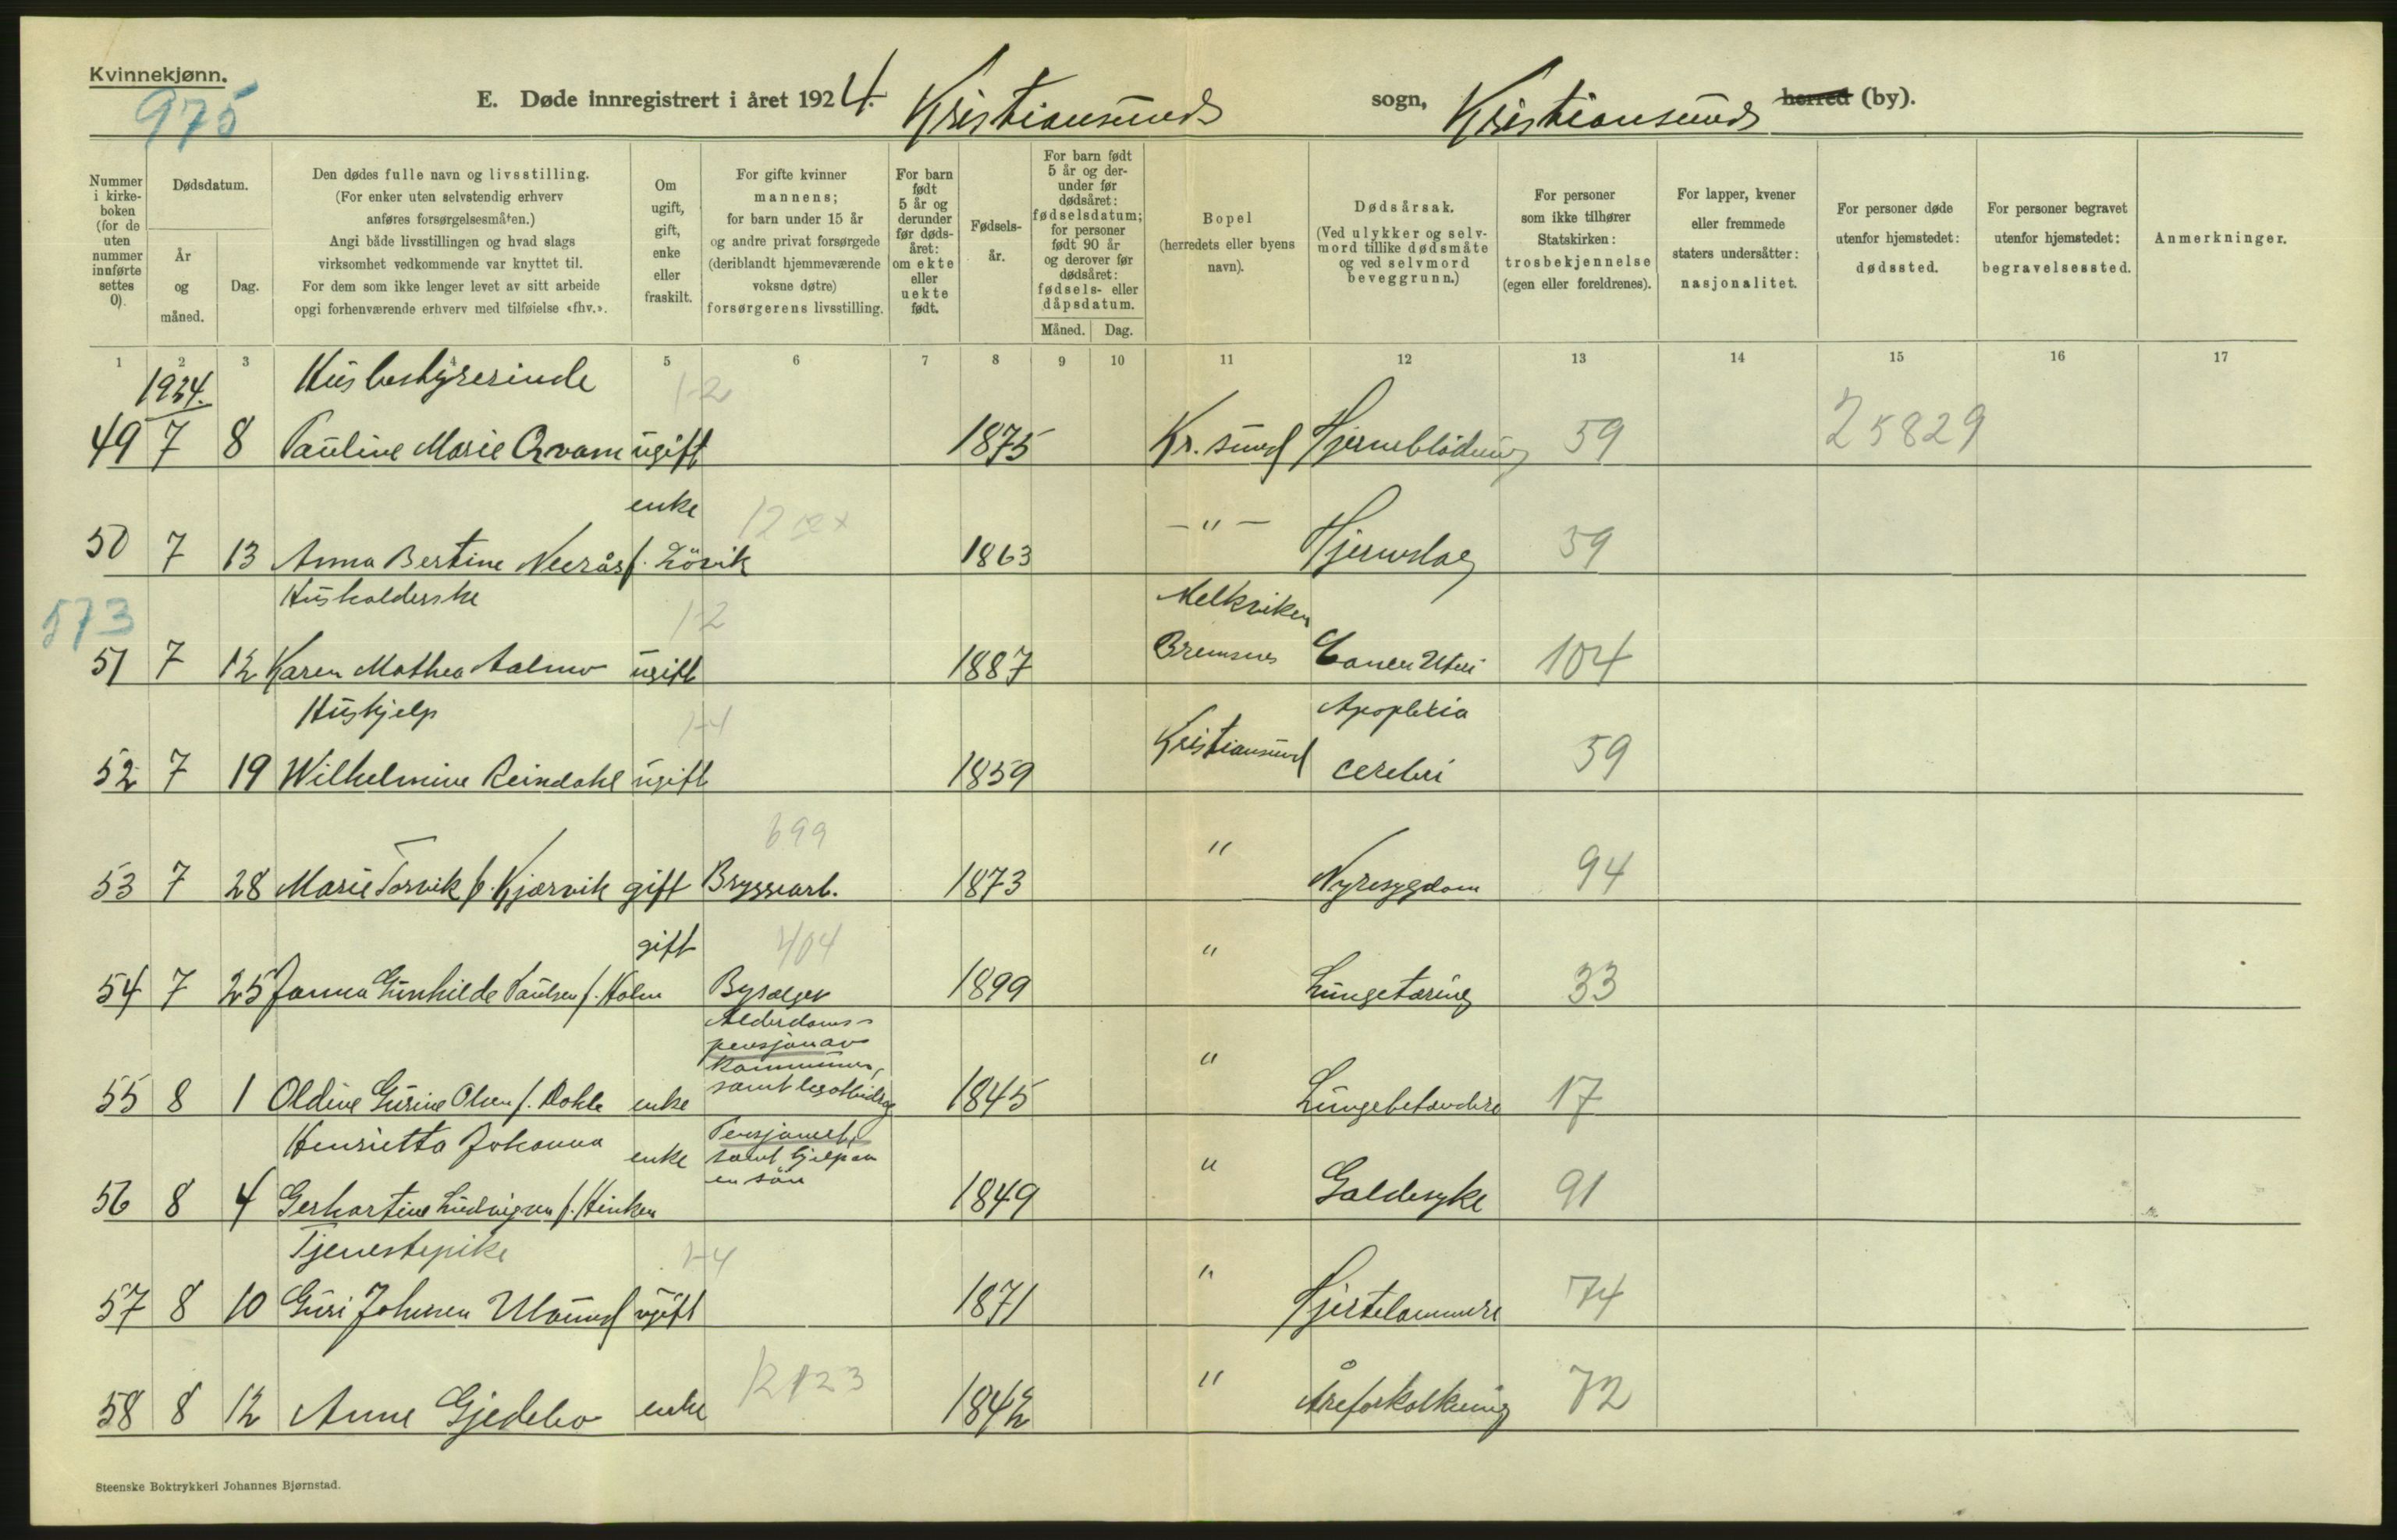 Kvinnekjønn.
975
E. Døde innregistrert i året 1924. Kristiansunds sogn, Kristiansunds herred (by).
Nummer i kirkeboken (for de uten nummer innførte settes 0).
Dødsdatum.
År og måned.
Dag.
Den dødes fulle navn og livsstilling.
(For enker uten selvstendig erhverv anføres forsørgelsesmåten.)
Angi både livsstillingen og hvad slags virksomhet vedkommende var knyttet til.
For dem som ikke lenger levet av sitt arbeide opgi forhenværende erhverv med tilføielse «fhv.».
Om ugift, gift, enke eller fraskilt.
For gifte kvinner mannens; for barn under 15 år og andre privat forsørgede (deriblandt hjemmeværende voksne døtre) forsørgerens livsstilling.
For barn født 5 år og derunder før dødsåret: om ekte eller uekte født.
Fødselsår.
For barn født 5 år og derunder før dødsåret: fødselsdatum; for personer født 90 år og derover før dødsåret: fødsels- eller dåpsdatum.
Måned. Dag.
Bopel (herredets eller byens navn).
Dødsårsak. (Ved ulykker og selvmord tillike dødsmåte og ved selvmord beveggrunn.)
For personer som ikke tilhører Statskirken: trosbekjennelse (egen eller foreldrenes).
For lapper, kvener eller fremmede staters undersåtter: nasjonalitet.
For personer døde utenfor hjemstedet: dødssted.
For personer begravet utenfor hjemstedet: begravelsessted.
Anmerkninger.
1 2 3 4 5 6 7 8 9 10 11 12 13 14 15 16 17
1924. Husbestyrerinde 1-2
49 7 8 Pauline Marie Qvam ugift 1875 Kr. sund Hjerneblödning 59 25829
enke
50 7 13 Anna Bertine Neerås f. Lövik 1863 - " - Hjerneslag 59
573 Husholderske 1-2 Melkviken
51 7 12 Karen Mathea Aalmo ugift 1887 Bremsnes Cancer Uteri 104
Hushjelp 1-4 Apoplexia
52 7 19 Wilhelmine Reindahl ugift 1859 Kristiansund cerebri 59
699
53 7 28 Marie Torvik f. Kjørvik gift Bryggearb. 1873 " Nyresygdom 94
gift 404
54 7 25 Janna Gunhilde Paulsen f. Holm Bysælger 1899 " Lungetæring 33
Alderdoms-
pensjon av
kommunen,
samt legatbidrag
55 8 1 Oldine Gurine Olsen f. Dahle enke 1845 " Lungebetændelse 17
Henrietta Johanna enke Pensjonert,
samt hjelp av
en sön
56 8 4 Gerhartine Ludvigsen f. Hinken 1849 " Galdesyke 91
Tjenestepike 1-4
57 8 10 Guri Johnsen Ulvund ugift 1871 " Hjertelammelse 74
12123
58 8 12 Anne Gjedebo enke 1842 " Åreforkalkning 72
Steenske Boktrykkeri Johannes Bjørnstad.